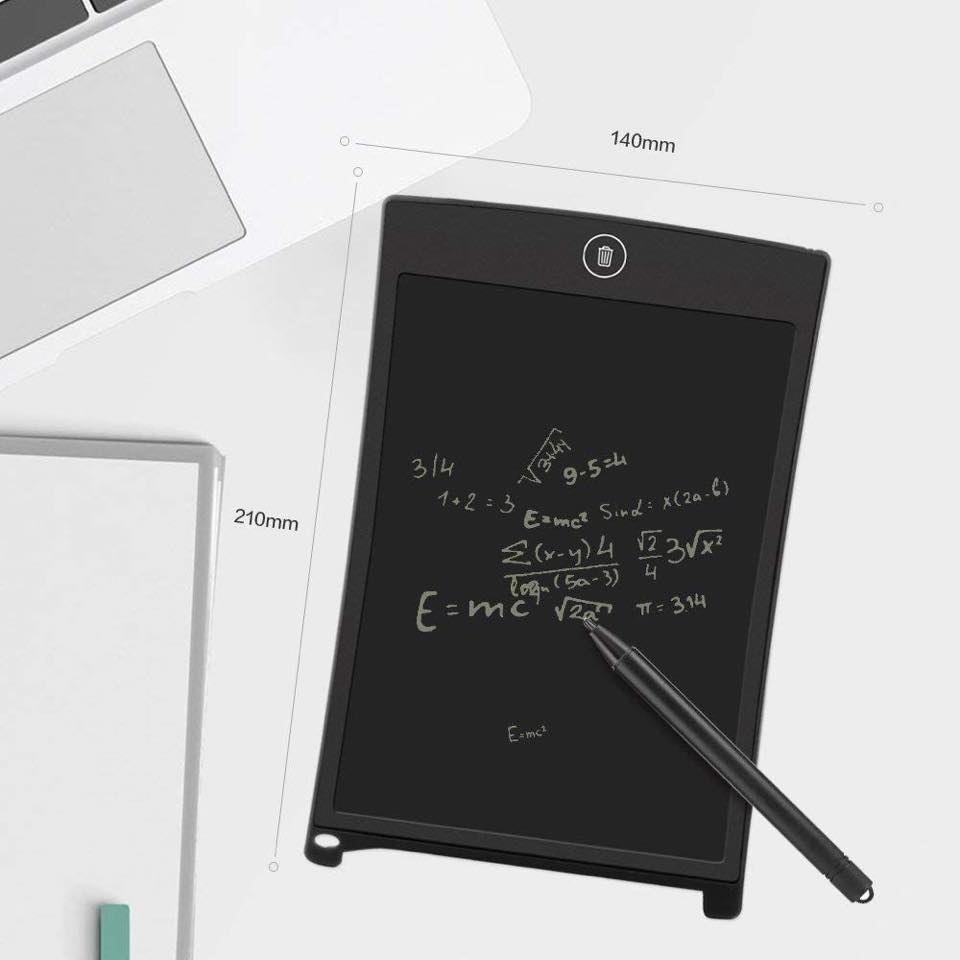 140mm
210mm
3/4
√3+44
9-5=4
1+2=3
E=mc²
Sinα= x(2a-b)
Σ(x-y)4
logn(5a-3)
√2
4
3√x²
E=mc
√2a
π=3.14
E=mc²